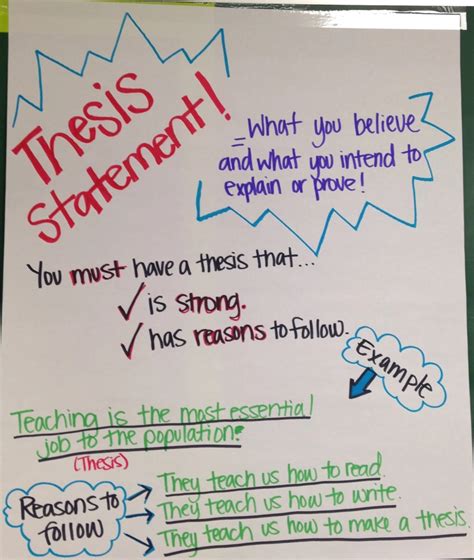 Thesis
Statement!
= What you believe
and what you intend to
explain or prove!
You must have a thesis that...
✓ is strong.
✓ has reasons to follow.
Example
Teaching is the most essential
job to the population.
(Thesis)
Reasons to
follow
They teach us how to read.
They teach us how to write.
They teach us how to make a thesis